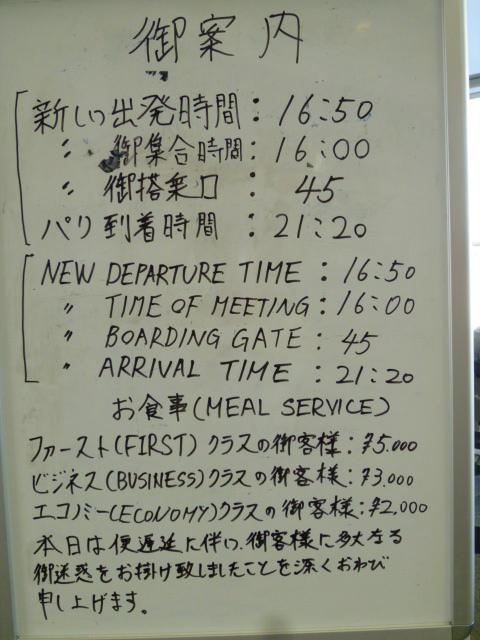 御案内
新しい出発時間：16:50
〃 御集合時間：16:00
〃 御搭乗口：45
パリ到着時間：21:20
NEW DEPARTURE TIME：16:50
〃 TIME OF MEETING：16:00
〃 BOARDING GATE：45
〃 ARRIVAL TIME：21:20
お食事(MEAL SERVICE)
ファースト(FIRST)クラスの御客様：¥5.000
ビジネス(BUSINESS)クラスの御客様：¥3.000
エコノミー(ECONOMY)クラスの御客様：¥2,000
本日は便遅延に伴い、御客様に多大なる
御迷惑をお掛け致しましたことを深くおわび
申し上げます。